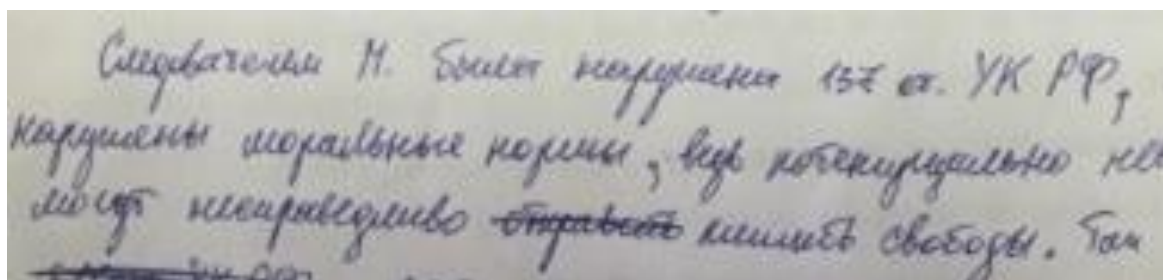 Следователем М. была нарушена 137 ст. УК РФ,
нарушены моральные нормы, ведь потенциально не
могут несправедливо отправить лишить свободы. Так